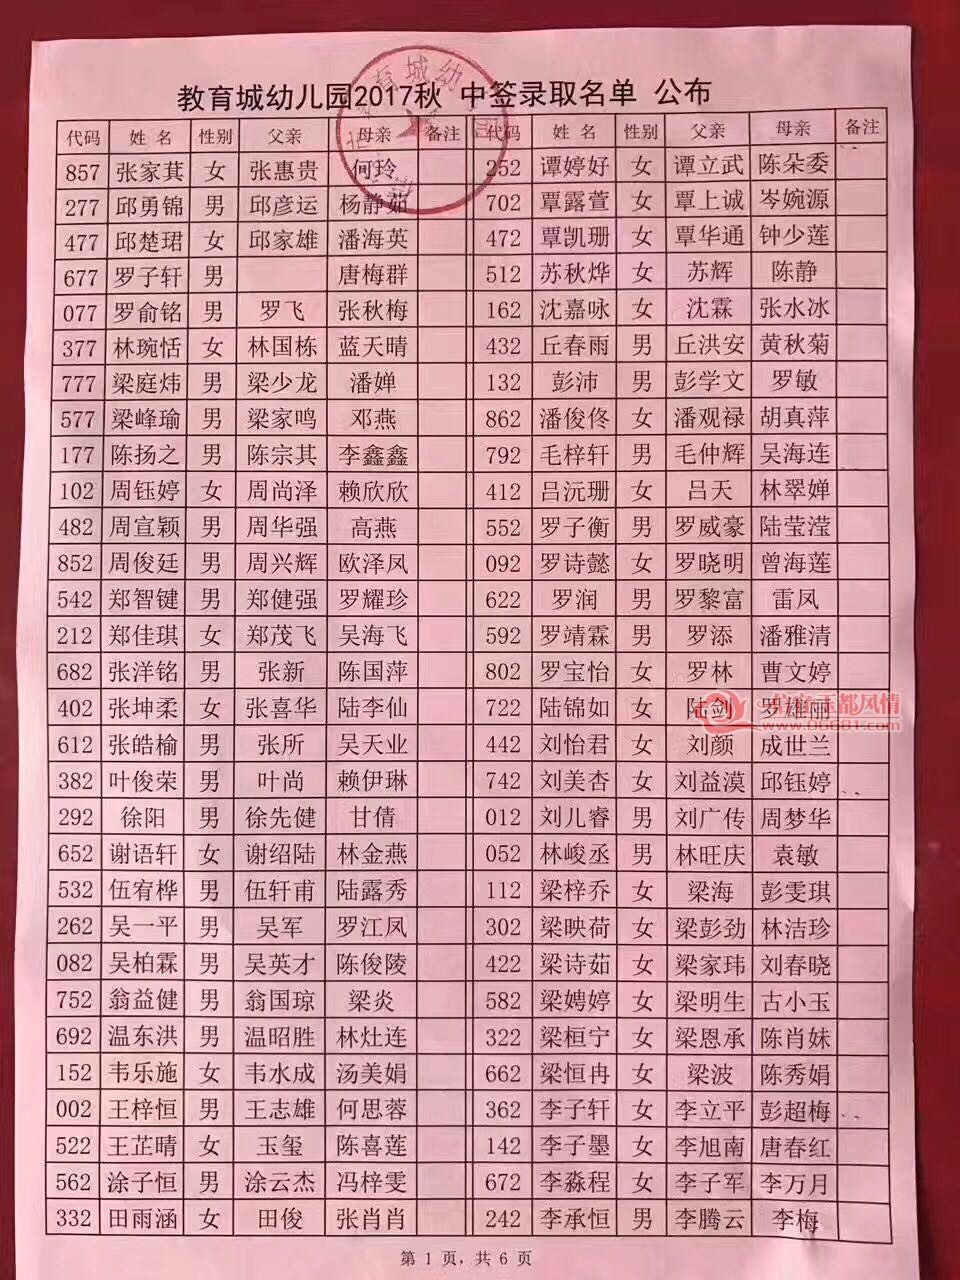 教育城幼儿园2017秋 中签录取名单 公布
代码 姓名 性别 父亲 母亲 备注 代码 姓名 性别 父亲 母亲 备注
857 张家萁 女 张惠贵 何玲 252 谭婷好 女 谭立武 陈朵委
277 邱勇锦 男 邱彦运 杨静茹 702 覃露萱 女 覃上诚 岑婉源
477 邱楚珺 女 邱家雄 潘海英 472 覃凯珊 女 覃华通 钟少莲
677 罗子轩 男 唐梅群 512 苏秋烨 女 苏辉 陈静
077 罗俞铭 男 罗飞 张秋梅 162 沈嘉咏 女 沈霖 张水冰
377 林琬恬 女 林国栋 蓝天晴 432 丘春雨 男 丘洪安 黄秋菊
777 梁庭炜 男 梁少龙 潘婵 132 彭沛 男 彭学文 罗敏
577 梁峰瑜 男 梁家鸣 邓燕 862 潘俊佟 女 潘观禄 胡真萍
177 陈扬之 男 陈宗其 李鑫鑫 792 毛梓轩 男 毛仲辉 吴海连
102 周钰婷 女 周尚泽 赖欣欣 412 吕沅珊 女 吕天 林翠婵
482 周宣颖 男 周华强 高燕 552 罗子衡 男 罗威豪 陆莹滢
852 周俊廷 男 周兴辉 欧泽凤 092 罗诗懿 女 罗晓明 曾海莲
542 郑智键 男 郑健强 罗耀珍 622 罗润 男 罗黎富 雷凤
212 郑佳琪 女 郑茂飞 吴海飞 592 罗靖霖 男 罗添 潘雅清
682 张洋铭 男 张新 陈国萍 802 罗宝怡 女 罗林 曹文婷
402 张坤柔 女 张喜华 陆李仙 722 陆锦如 女 陆剑 罗雄丽
612 张皓榆 男 张所 吴天业 442 刘怡君 女 刘颜 成世兰
382 叶俊荣 男 叶尚 赖伊琳 742 刘美杏 女 刘益漠 邱钰婷
292 徐阳 男 徐先健 甘倩 012 刘儿睿 男 刘广传 周梦华
652 谢语轩 女 谢绍陆 林金燕 052 林峻丞 男 林旺庆 袁敏
532 伍宥桦 男 伍轩甫 陆露秀 112 梁梓乔 女 梁海 彭雯琪
262 吴一平 男 吴军 罗江凤 302 梁映荷 女 梁彭劲 林洁珍
082 吴柏霖 男 吴英才 陈俊陵 422 梁诗茹 女 梁家玮 刘春晓
752 翁益健 男 翁国琼 梁炎 582 梁娉婷 女 梁明生 古小玉
692 温东洪 男 温昭胜 林灶连 322 梁桓宁 女 梁恩承 陈肖妹
152 韦乐施 女 韦水成 汤美娟 662 梁恒冉 女 梁波 陈秀娟
002 王梓恒 男 王志雄 何思蓉 362 李子轩 女 李立平 彭超梅
522 王芷晴 女 玉玺 陈喜莲 142 李子墨 女 李旭南 唐春红
562 涂子恒 男 涂云杰 冯梓雯 672 李淼程 女 李子军 李万月
332 田雨涵 女 田俊 张肖肖 242 李承恒 男 李腾云 李梅
第 1 页, 共 6 页